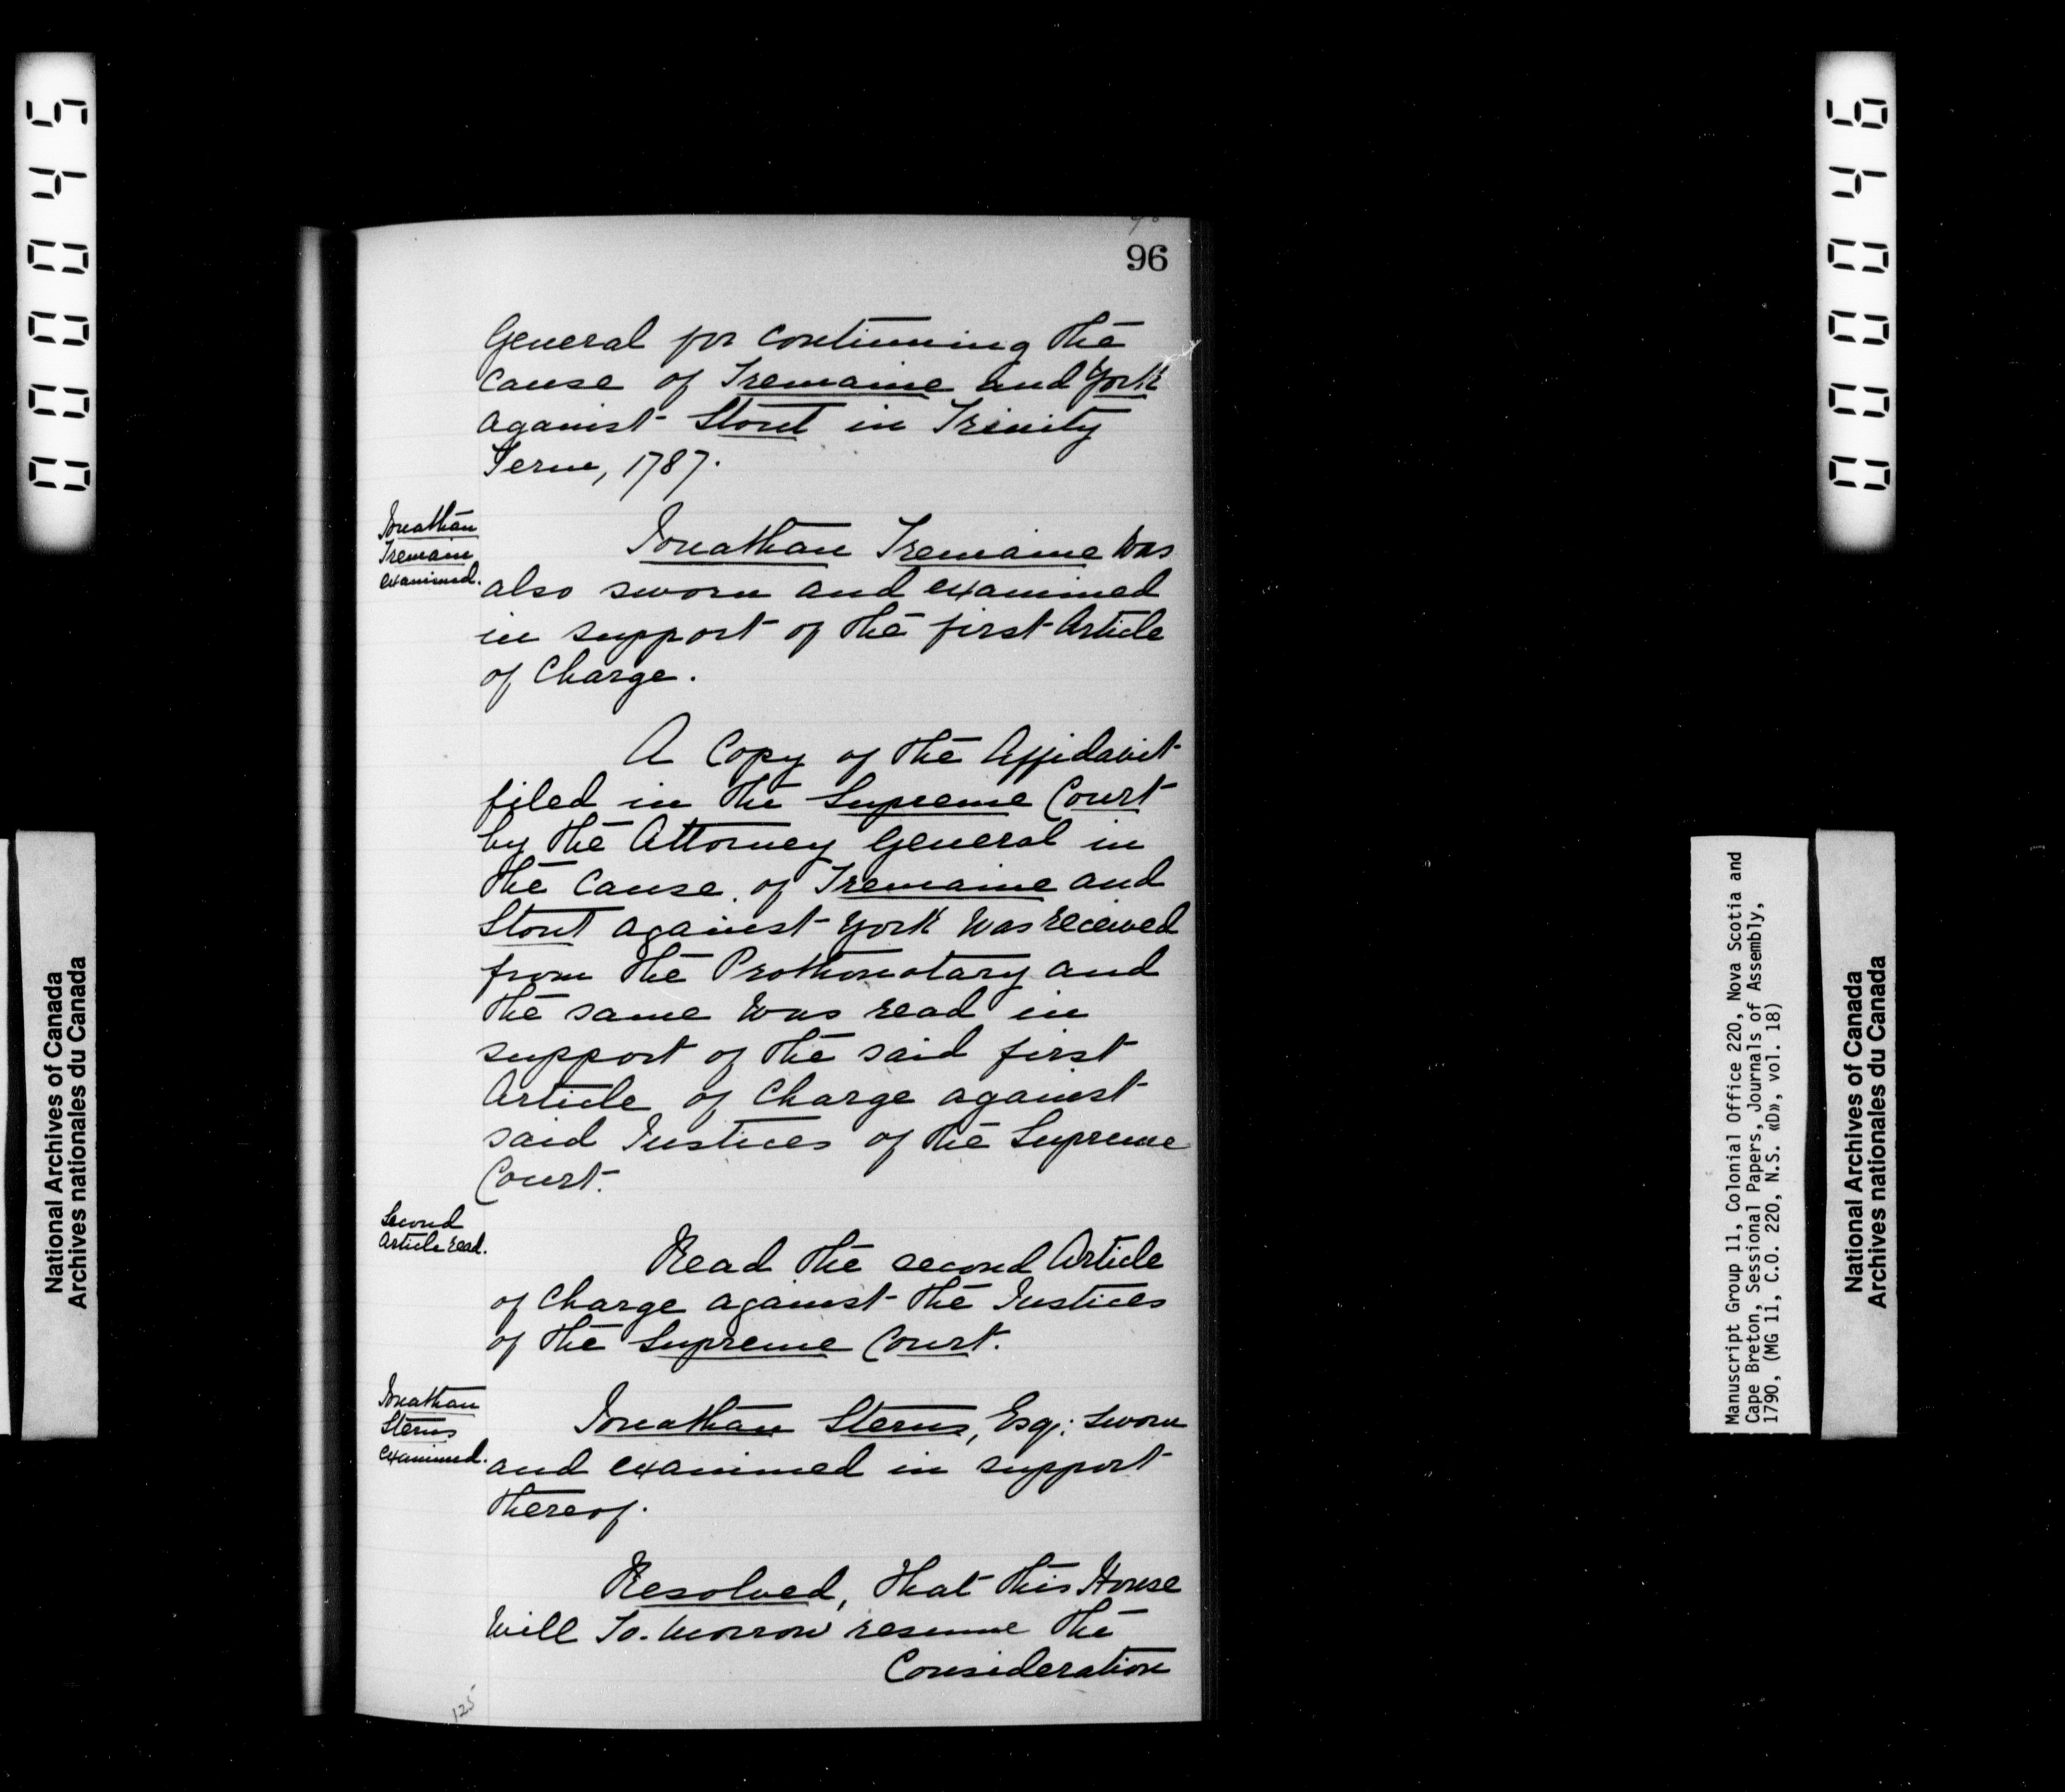 000045
National Archives of Canada
Archives nationales du Canada
96
General for continuing the
Cause of Tremaine and York
against Stout in Trinity
Term, 1787.
Jonathan
Tremain
examined.
Jonathan Tremaine was
also sworn and examined
in support of the first Article
of Charge.
A Copy of the Affidavit
filed in the Supreme Court
by the Attorney General in
the Cause of Tremaine and
Stout against York was received
from the Prothonotary and
the same was read in
support of the said first
Article of Charge against
said Justices of the Supreme
Court.
Second
Article read.
Read the second Article
of Charge against the Justices
of the Supreme Court.
Jonathan
Sterns
examined.
Jonathan Sterns, Esq: sworn
and examined in support
thereof.
Resolved, that this House
will To-morrow resume the
Consideration
125
000046
Manuscript Group 11, Colonial Office 220, Nova Scotia and
Cape Breton, Sessional Papers, Journals of Assembly,
1790, (MG 11, C.O. 220, N.S. «D», vol. 18)
National Archives of Canada
Archives nationales du Canada